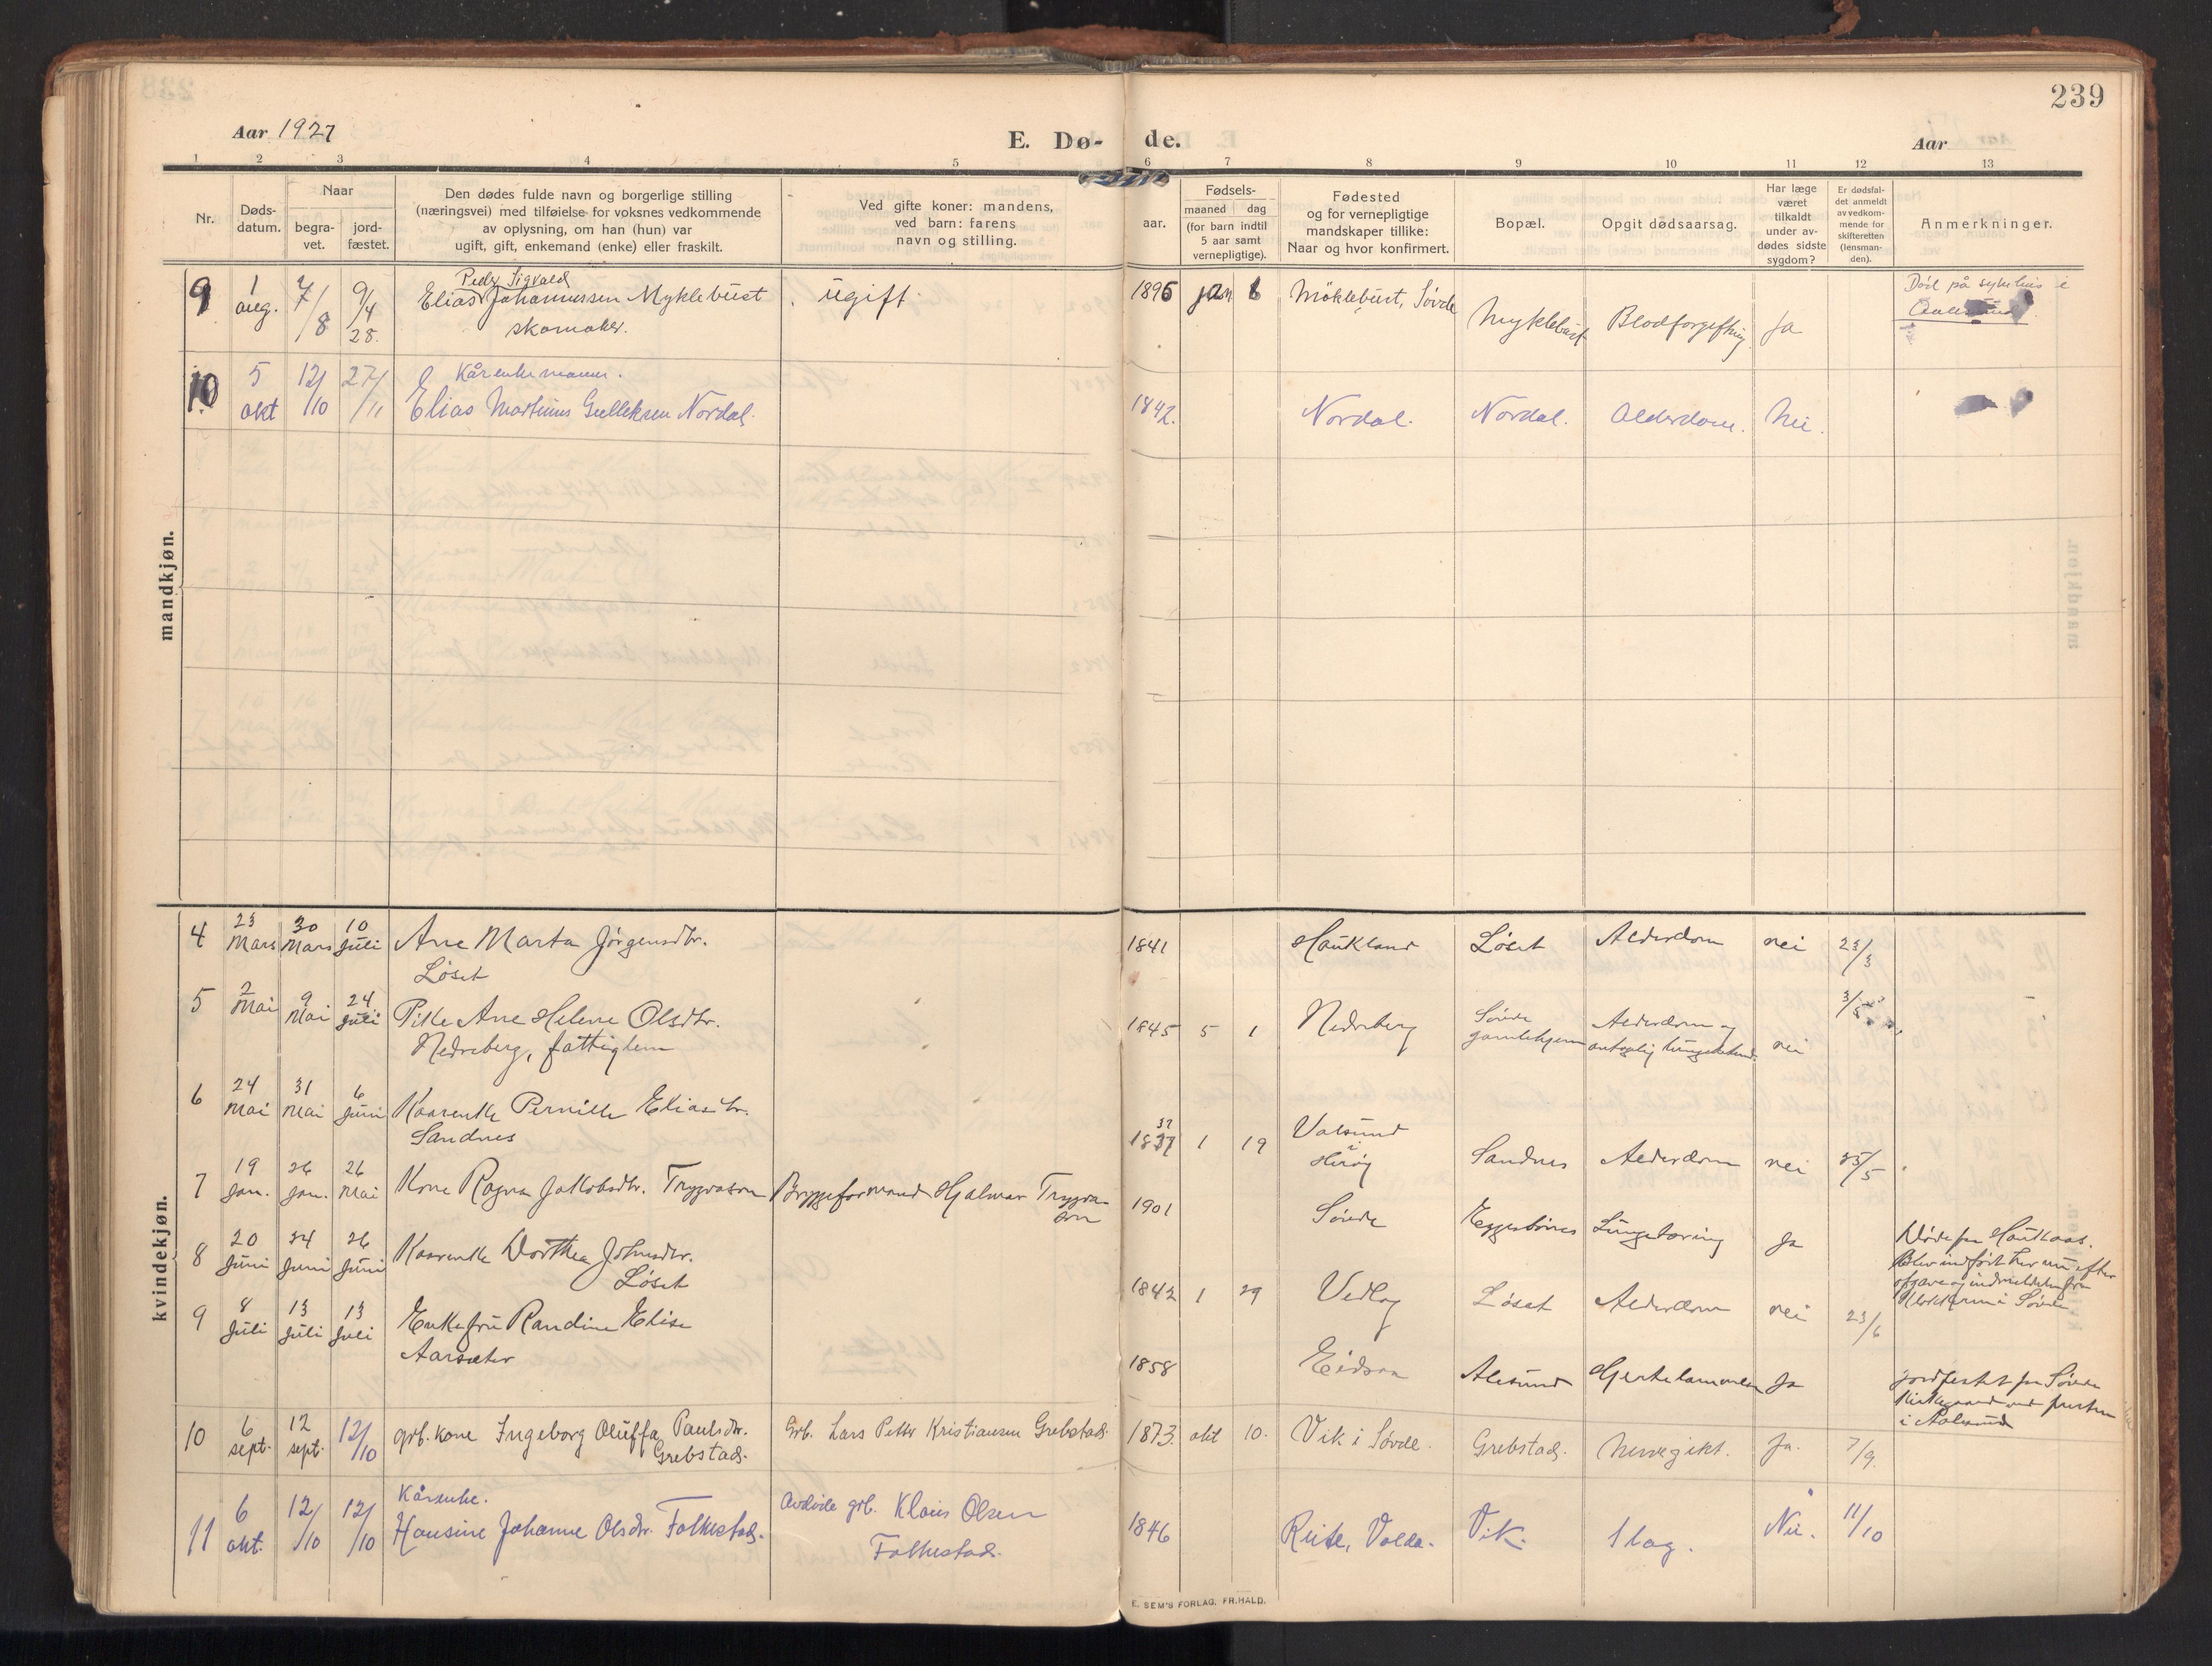 239
Aar 1927
E. Dø-
de.
Aar
1 2 3 4 5 6 7 8 9 10 11 12 13
Nr.
Døds-
datum.
Naar
begra-
vet.
jord-
fæstet.
Den dødes fulde navn og borgerlige stilling
(næringsvei) med tilføielse for voksnes vedkommende
av oplysning, om han (hun) var
ugift, gift, enkemand (enke) eller fraskilt.
Ved gifte koner: mandens,
ved barn: farens
navn og stilling.
aar.
Fødsels-
maaned dag
(for barn indtil
5 aar samt
vernepligtige).
Fødested
og for vernepligtige
mandskaper tillike:
Naar og hvor konfirmert.
Bopæl.
Opgit dødsaarsag.
Har læge
været
tilkaldt
under av-
dødes sidste
sygdom?
Er dødsfal-
det anmeldt
av vedkom-
mende for
skifteretten
(lensman-
den).
Anmerkninger.
mandkjøn.
9 1 aug. 7/8 9/4 28.
Peder Sigvald
Elias Johannessen Myklebust
skomaker.
ugift.
1896 jan 6 Möklebust, Søvde Myklebust Blodforgiftning Ja
Död på sykehus i
Aalesund.
10 5 okt 12/10 27/11
Kårenkemann.
Elias Martinus Gulleksen Nordal.
1842. Nordal. Nordal. Alderdom. Nei.
kvindekjøn.
4 23 Mars 30 Mars 10 Juli
Ane Marta Jørgensdtr.
Løset
1841 Haukland Løset Alderdom nei 23/3
5 2 Mai 9 Mai 24 Juli
Pike Ane Helene Olsdtr.
Nedreberg, fattiglem
1845 5 1 Nedreberg Søvde
gamlehjem Alderdom og
antagelig nei 3/5
6 24 Mai 31 Mai 6 Juni
Kaarenke Pernille Eliasdtr.
Sandnes
1837 37 1 19 Valsund
i
Herøy Sandnes Alderdom nei 25/5
7 19 Jan. 26 Jan. 26 Mai
Kone Ragna Jakobsdtr. Trygvason
Bryggeformand Hjalmar Trygva-
son
1901 Søvde Eggesbønes Lungetæring Ja
8 20 Juni 24 Juni 26 Juni
Kaarenke Dorthea Johnsdtr.
Løset
1842 1 29 Vedlog Løset Alderdom nei 23/6
9 8 Juli 13 Juli 13 Juli
Enkefru Randine Elise
Aarsæter
1858 Eidsaa Alesund Hjertelammelse Ja
jordfestet paa Søvde
Kirkegaard ved presten
i Aalesund
10 6 sept. 12 sept. 12/10
grb. kone Ingeborg Oluffa Paulsdtr.
Grebstad.
Grb. Lars Petter Kristiansen Grebstad.
1873. okt 10. Vik i Søvde. Grebstad. Ja. 7/9.
11 6 okt. 12/10 12/10
Kårenke.
Hansine Johanne Olsdtr. Folkestad.
Avdøde grb. Klaus Olsen
Folkestad.
1846 Volda. Vik. Slag. Nei. 11/10
E. SEM'S FORLAG, FR.HALD.